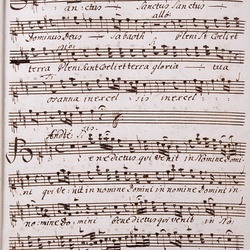 anctus Sanctus Sanctus
allo:
Dominus Deus Sabaoth pleni st Coeli et
terra Pleni sunt Coeli et terra gloria tua
osanna in excel sis in excel
And:te
enedictus qui venit in Nomine domi
ni qui venit in nomine domini in nomine domini in
no mine do mini benedictus qui venit in No